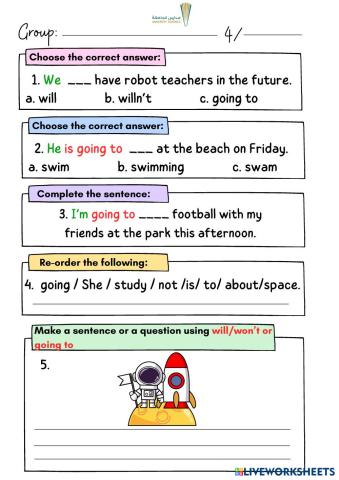 Group: 4/
Choose the correct answer:
1. We ___ have robot teachers in the future.
a. will b. willn't c. going to
Choose the correct answer:
2. He is going to ___ at the beach on Friday.
a. swim b. swimming c. swam
Complete the sentence:
3. I'm going to ____ football with my
friends at the park this afternoon.
Re-order the following:
4. going / She / study / not /is/ to/ about/space.
Make a sentence or a question using will/won't or
going to
5.
LIVEWORKSHEETS